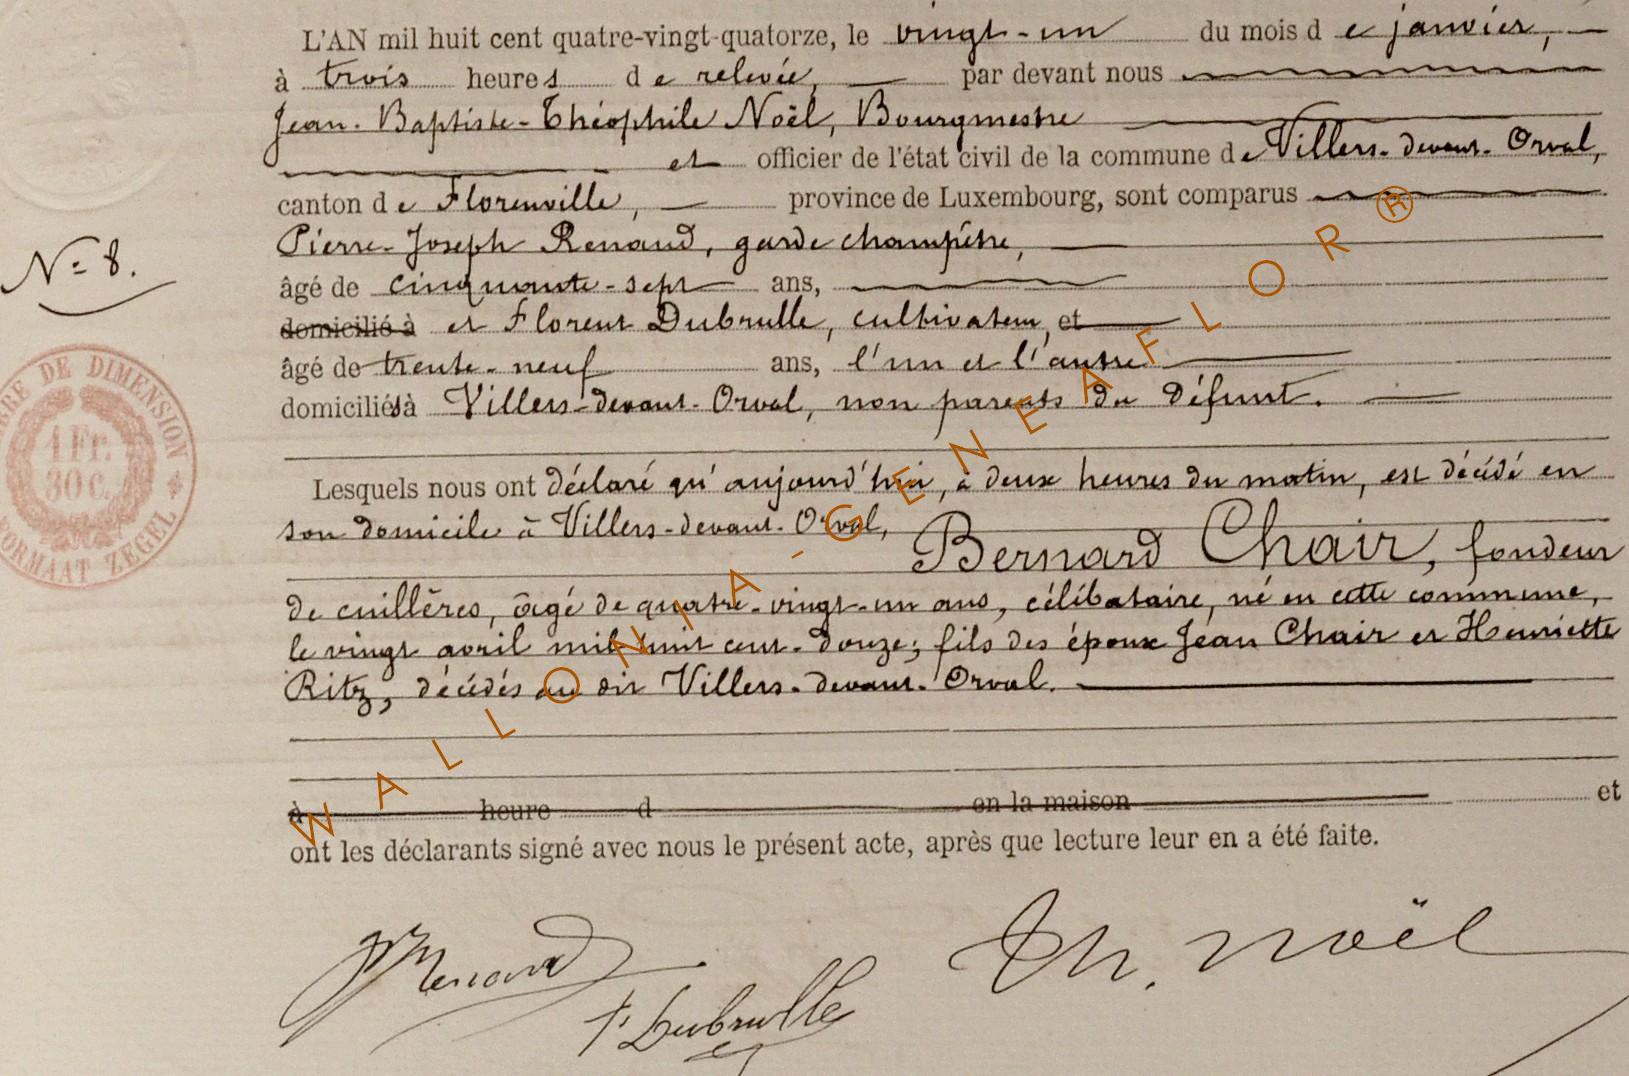 L'AN mil huit cent quatre-vingt-quatorze, le vingt-un du mois de janvier,
à trois heures de relevée, par devant nous
Jean-Baptiste-Théophile Noël, Bourgmestre
et officier de l'état civil de la commune de Villers-devant-Orval,
canton de Florenville, province de Luxembourg, sont comparus
Pierre-Joseph Renaud, garde champêtre,
N° 8.
âgé de cinquante-sept ans,
domicilié à et Florent Dubrulle, cultivateur, et
âgé de trente-neuf ans, l'un et l'autre
domiciliés à Villers-devant-Orval, non parents du défunt.
TIMBRE DE DIMENSION
1 Fr.
30 c.
FORMAAT ZEGEL
Lesquels nous ont déclaré qu'aujourd'hui, à deux heures du matin, est décédé en
son domicile à Villers-devant-Orval, Bernard Chair, fondeur
de cuillères, âgé de quatre-vingt-un ans, célibataire, né en cette commune,
le vingt avril mil huit cent-douze; fils des époux Jean Chair et Henriette
Ritz, décédés au dit Villers-devant-Orval.
à heure d en la maison et
ont les déclarants signé avec nous le présent acte, après que lecture leur en a été faite.
Renaud
F. Dubrulle
Th. Noël
WALLONIA-GENEAFLOR®